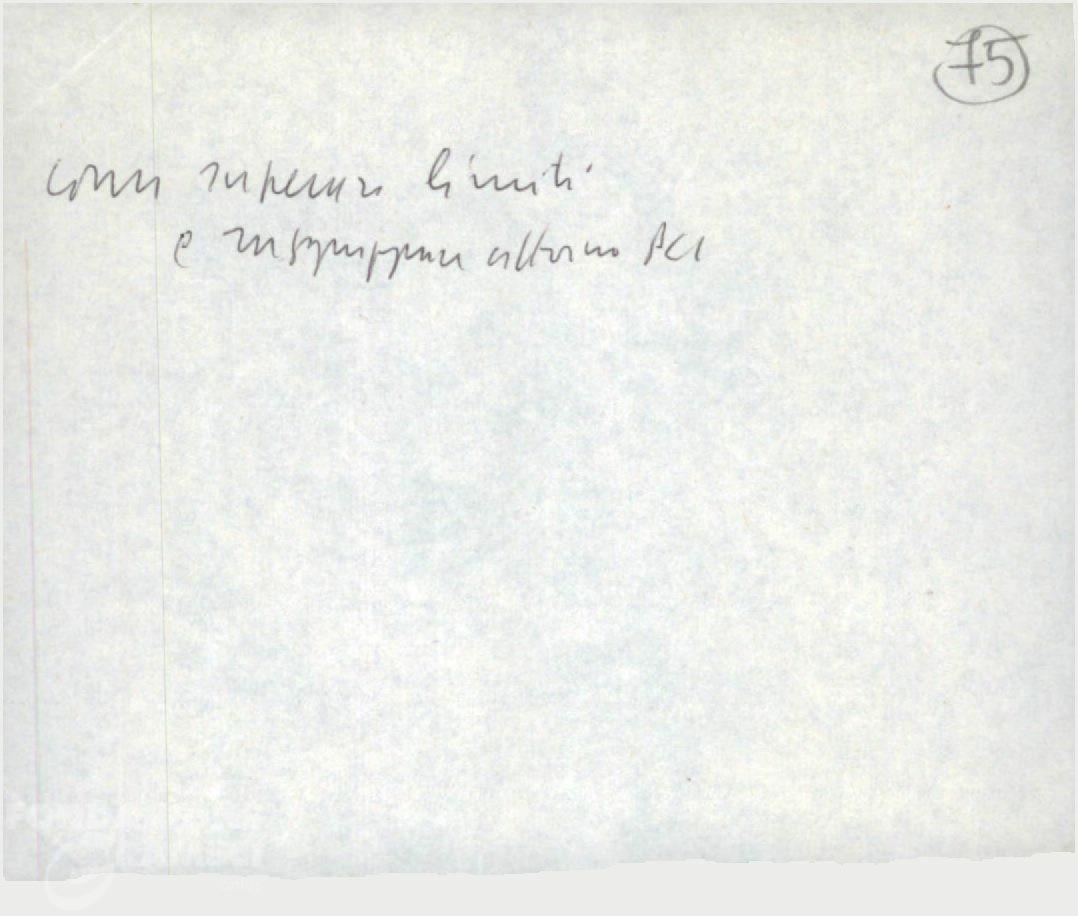 75
come superare limiti
e raggruppare attorno PCI